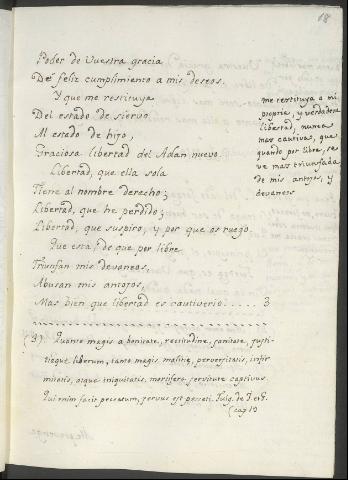 18
Poder de Vuestra gracia
Dé feliz cumplimiento a mis deseos.
Y que me restituya
Del estado de siervo
Al estado de hijo,
Graciosa libertad del Adan nuevo.
Libertad, que ella sola
Tiene al nombre derecho;
Libertad, que he perdido;
Libertad, que suspiro, y por que os ruego.
Que esta, de que por libre
Triunfan mis devaneos,
Abusan mis antojos,
Mas bien que libertad es cautiverio..... 3
me restituya a mi
propria, y verdadera
libertad, nunca
mas cautiva, que
quando por libre, se
ve mas triunfada
de mis antojos, y
devaneos
(3) Quanto magis a bonitate, rectitudine, sanitate, justi-
tiaque liberum, tanto magis malitiæ, perversitatis, infir
mitatis, atque iniquitatis, mortifera servitute captivum.
Qui enim facit peccatum, servus est peccati. Fulg. de I et G.
cap 19